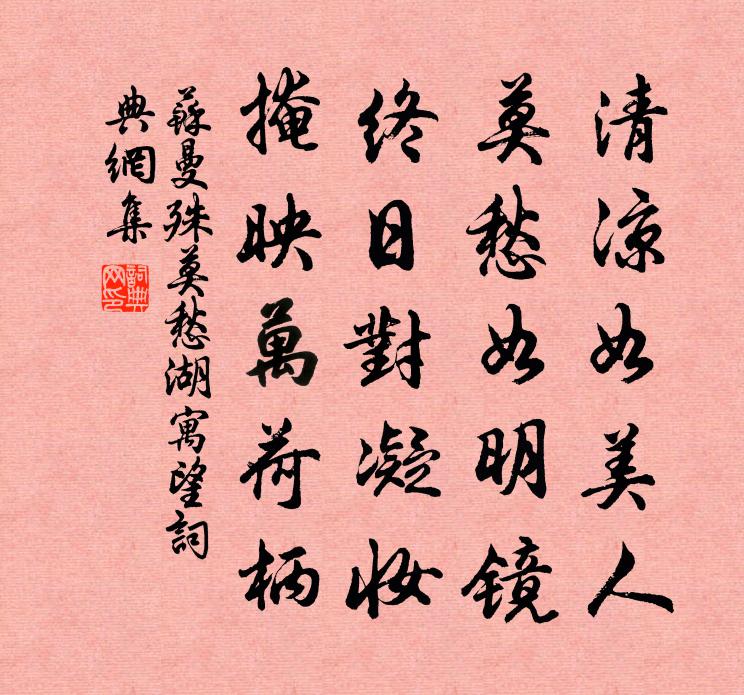 清凉如美人
莫愁如明镜
终日對凝妆
掩映萬荷柄
蘇曼殊莫愁湖寓望詞
典網集
詞典網印